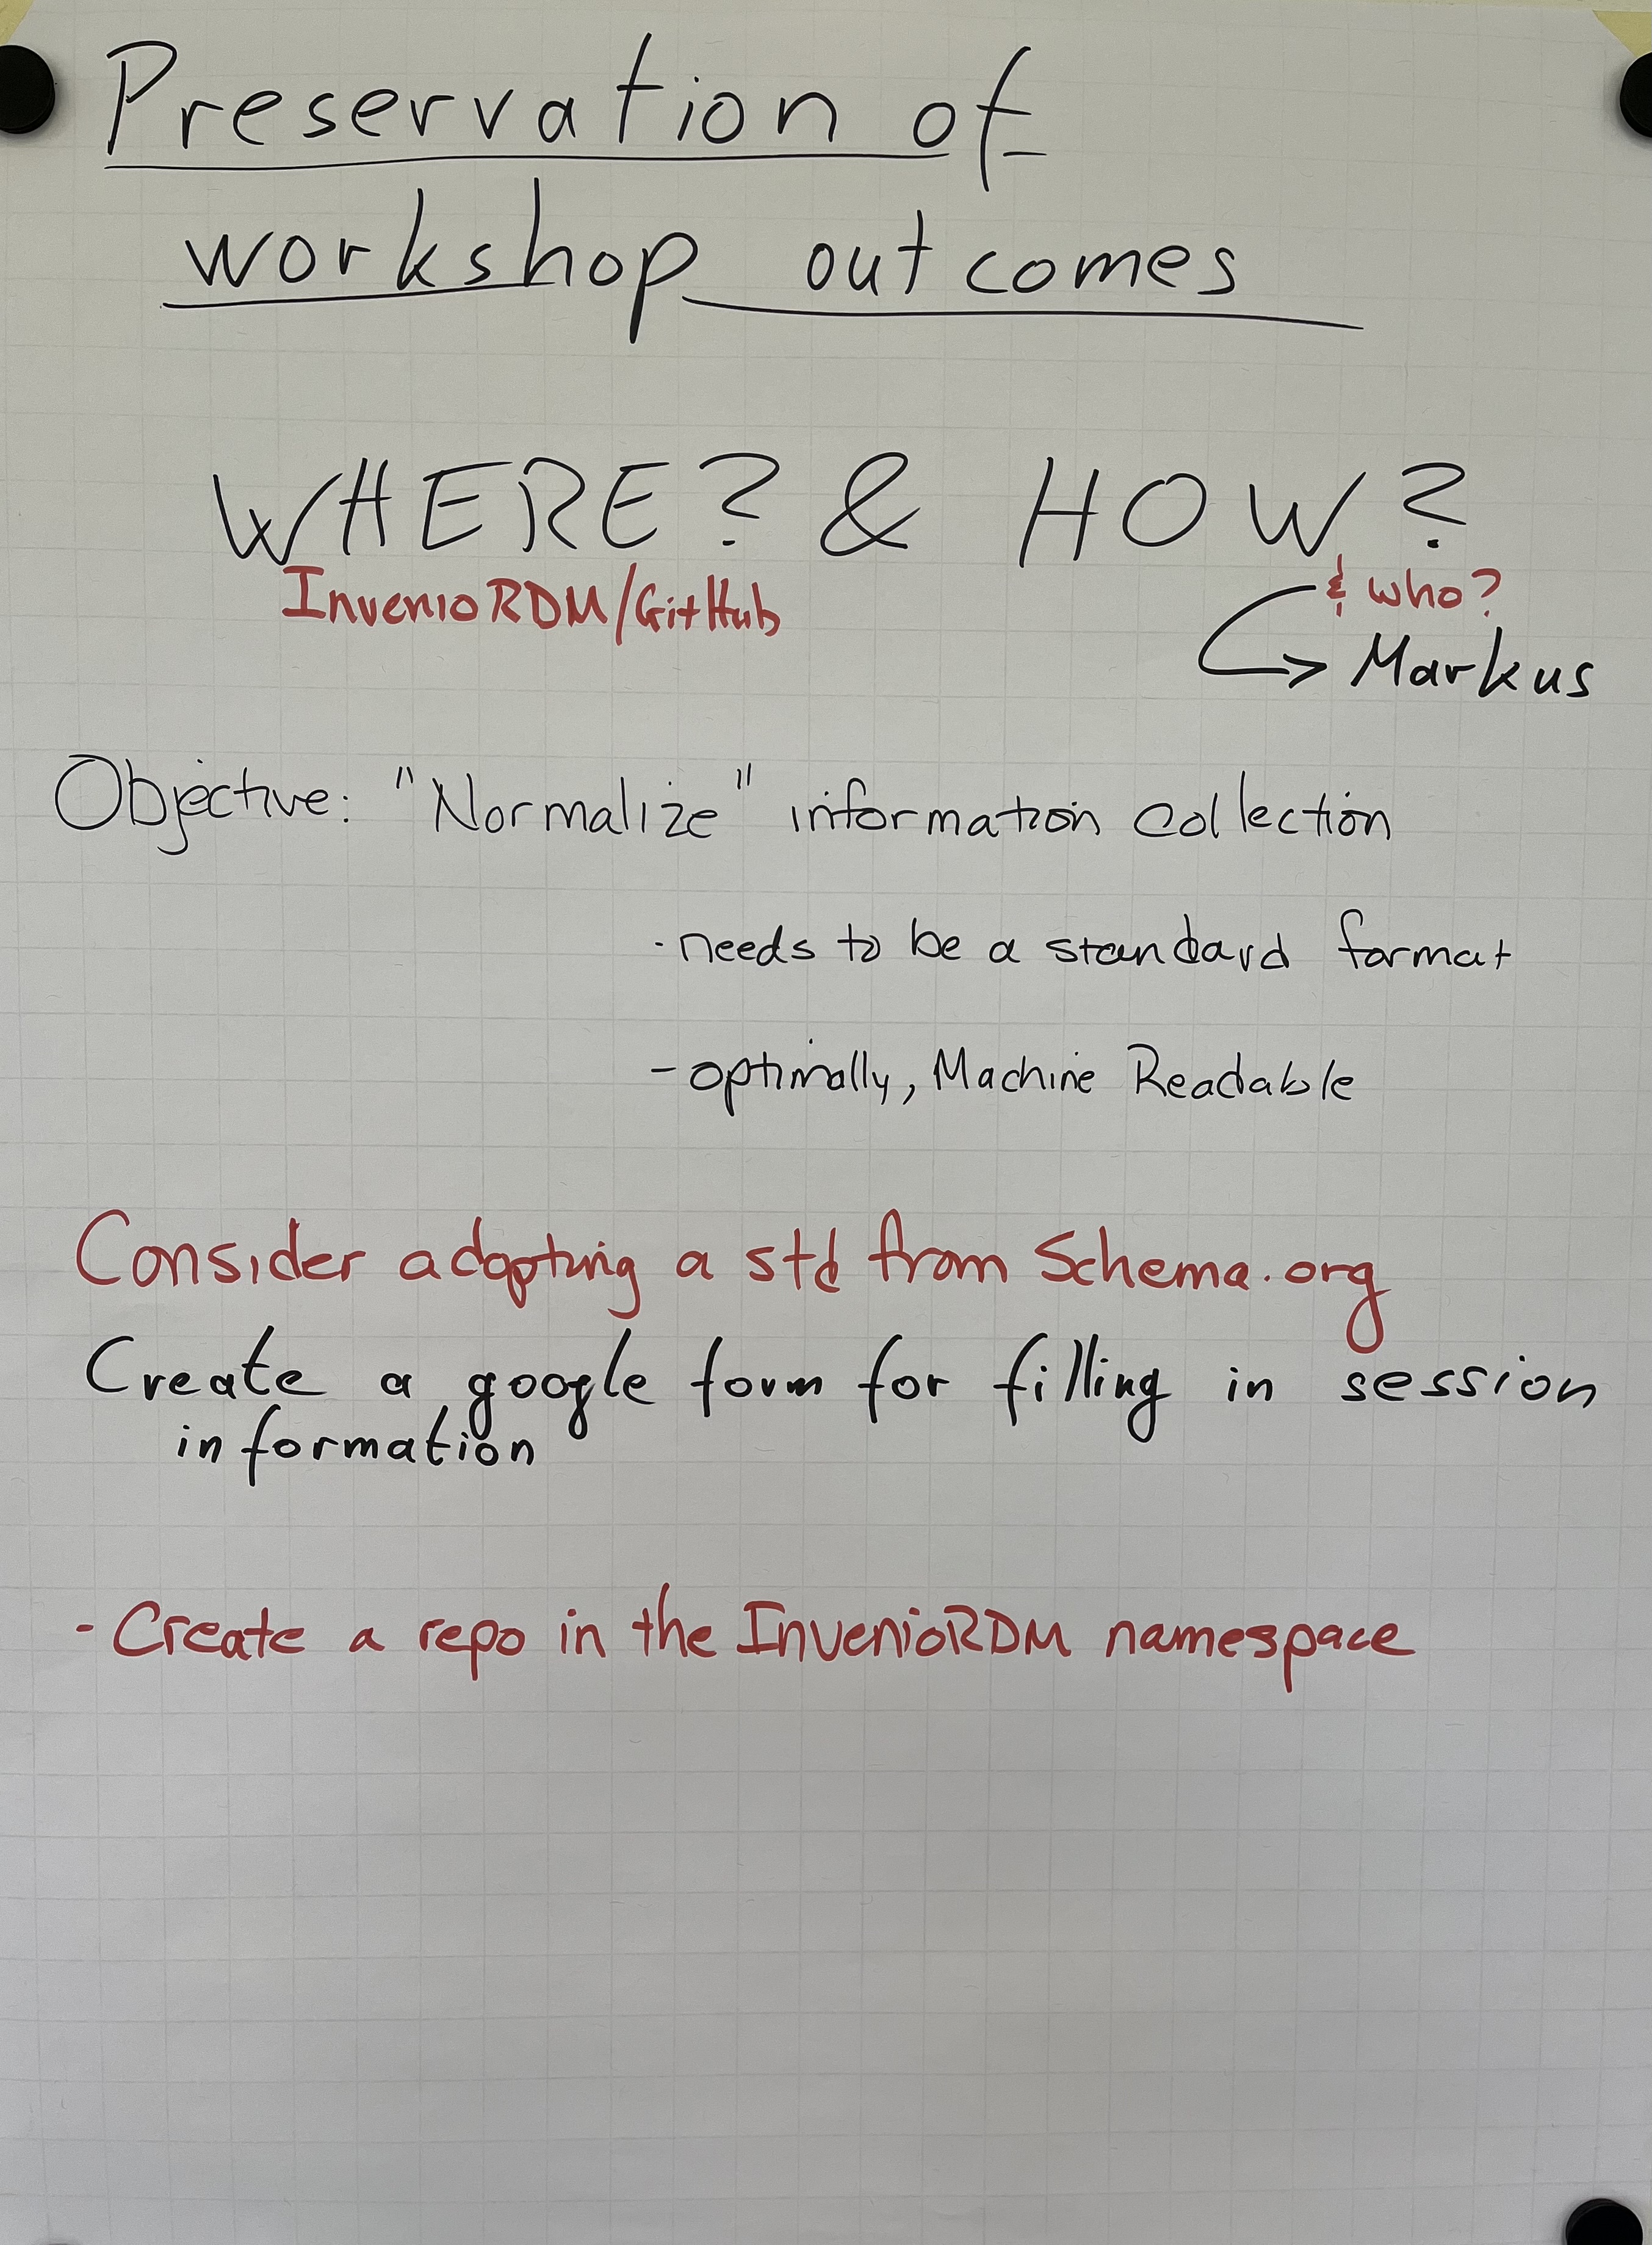 Preservation of
workshop outcomes
WHERE? & HOW?
InvenioRDM/GitHub
& who?
Markus
Objective: "Normalize" information collection
· needs to be a standard format
- optimally, Machine Readable
Consider adopting a std from Schema.org
Create a google form for filling in session
information
- Create a repo in the InvenioRDM namespace